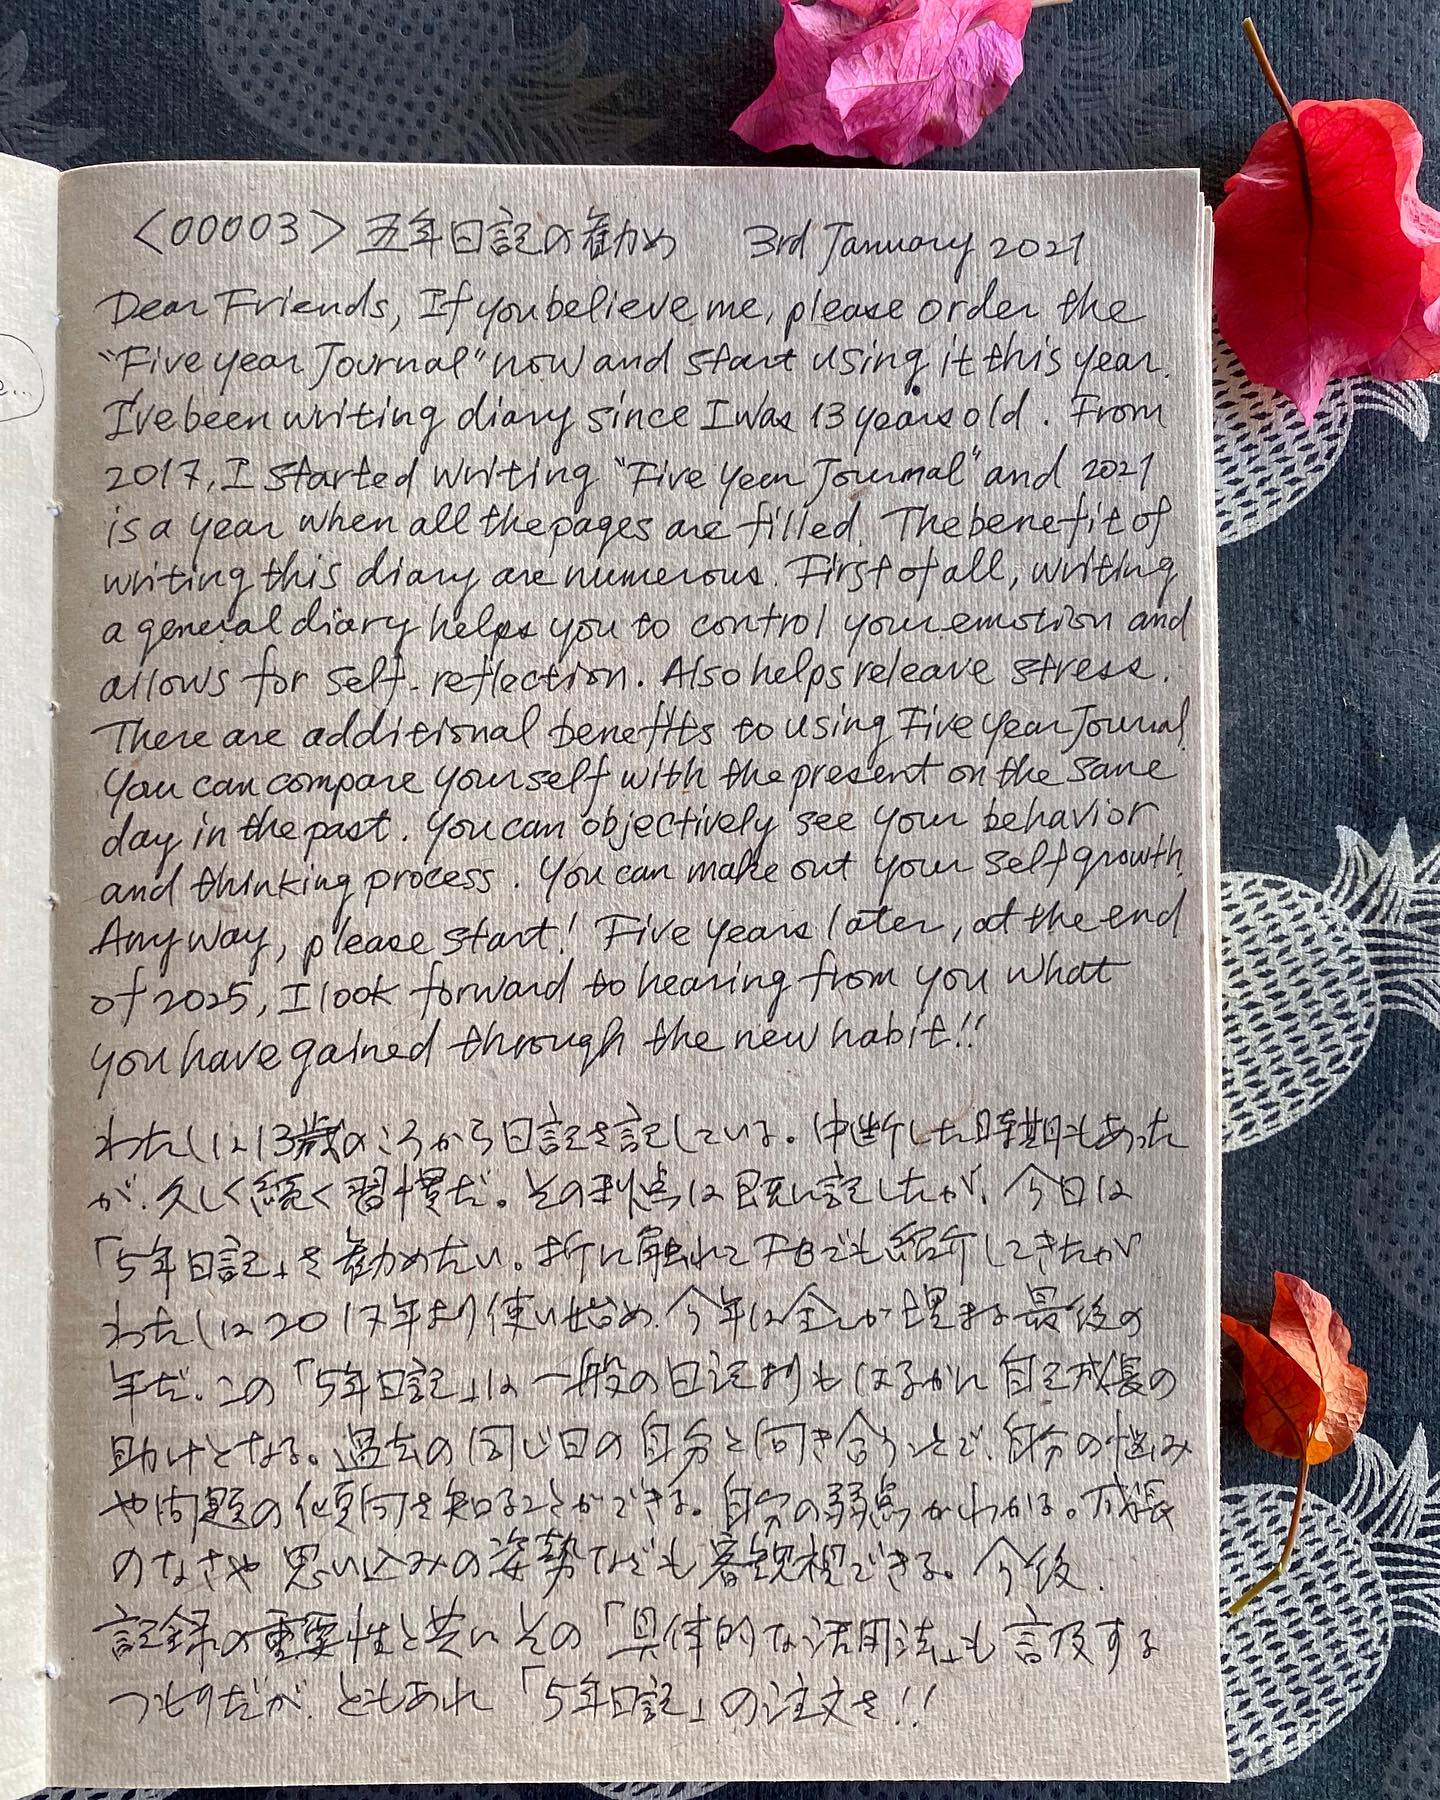 <00003> 五年日記の勧め 3rd January 2021
Dear Friends, If you believe me, please order the
"Five year Journal" now and start using it this year.
I've been writing diary since I was 13 years old. From
2017, I started writing "Five Year Journal" and 2021
is a year when all the pages are filled. The benefit of
writing this diary are numerous. First of all, writing
a general diary helps you to control your emotion and
allows for self-reflection. Also helps releave stress.
There are additional benefits to using Five Year Journal.
You can compare yourself with the present on the same
day in the past. You can objectively see your behavior
and thinking process. You can make out your self growth.
Anyway, please start! Five years later, at the end
of 2025, I look forward to hearing from you what
you have gained through the new habit!!
わたしは13歳のころから日記を記している。中断した時期もあった
が、久しく続く習慣だ。その利点は既に記したが、今日は
「5年日記」を勧めたい。折に触れてFBでも紹介してきたが
わたしは2017年より使い始め、今年は全てが埋まる最後の
年だ。この「5年日記」は一般の日記よりもはるかに自己成長の
助けとなる。過去の同じ日の自分と向き合うことで、自分の悩み
や問題の傾向を知ることができる。自分の弱点がわかる。成長
のなさや思い込みの姿勢なども客観視できる。今後、
記録の重要性と共にその「具体的な活用法」も言及する
つもりだが、ともあれ「5年日記」の注文を!!